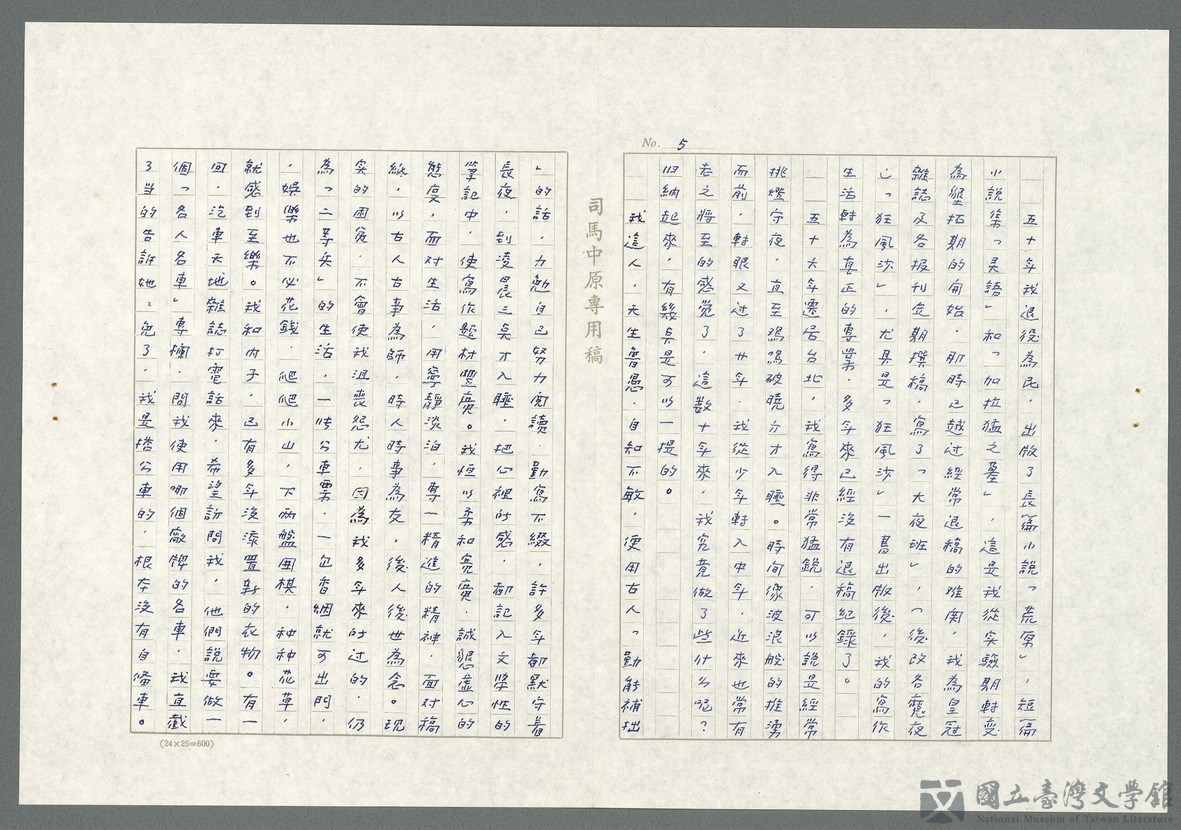 No. 5
五十年我退役為民，出版了長篇小說「荒原」，短篇
小說集「靈語」和「加拉猛之墓」，這是我從实驗期轉变
為墾拓期的開始，那時已越过經常退稿的难関，我為皇冠
雜誌及各报刊定期撰稿，寫了「大夜班」，「後改各魔夜
」「狂風沙」，尤其是「狂風沙」一書出版後，我的寫作
生活轉為真正的專業，多年來已經沒有退稿紀錄了。
五十六年遷居台北，我寫得非常猛銳，可以說是經常
挑燈守夜，直至鸡鸣破曉方才入睡。時间像波浪般的推湧
而前，轉眼又过了廿年，我從少年轉入中年，近來也常有
老之將至的感觉了，這數十年來，我究竟做了些什么呢？
归納起來，有幾点是可以一提的。
我這人，天生魯愚，自知不敏，便用古人「勤能補拙
司馬中原專用稿
」的話，力勉自己努力阅讀，勤寫不綴，許多年都默守着
長夜，到凌晨三点才入睡，把心裡的感，都記入文學性的
筆記中，使寫作题材豐廣。我恒以柔和寬廣，誠懇虛心的
態度，面对生活，用寧靜淡泊，專一精進的精神，面对稿
紙，以古人古事為師，時人時事為友，後人後世為念。现
实的困窮，不會使我沮喪怨尤，因為我多年來的过的，仍
為「二等兵」的生活，一張公車票，一包香烟就可出門，
，娛樂也不必花錢，爬爬小山，下兩盤围棋，种种花草，
就感到至樂。我和内子，已有多年沒添置新的衣物。有一
回，汽車天地雜誌打電話來，希望訪問我，他們說要做一
個「各人名車」專欄，問我使用哪個廠牌的各車，我直截
了当的告訴她：免了，我是搭公車的，根本沒有自備車。
(24×25=600)
國立臺灣文學館
National Museum of Taiwan Literature